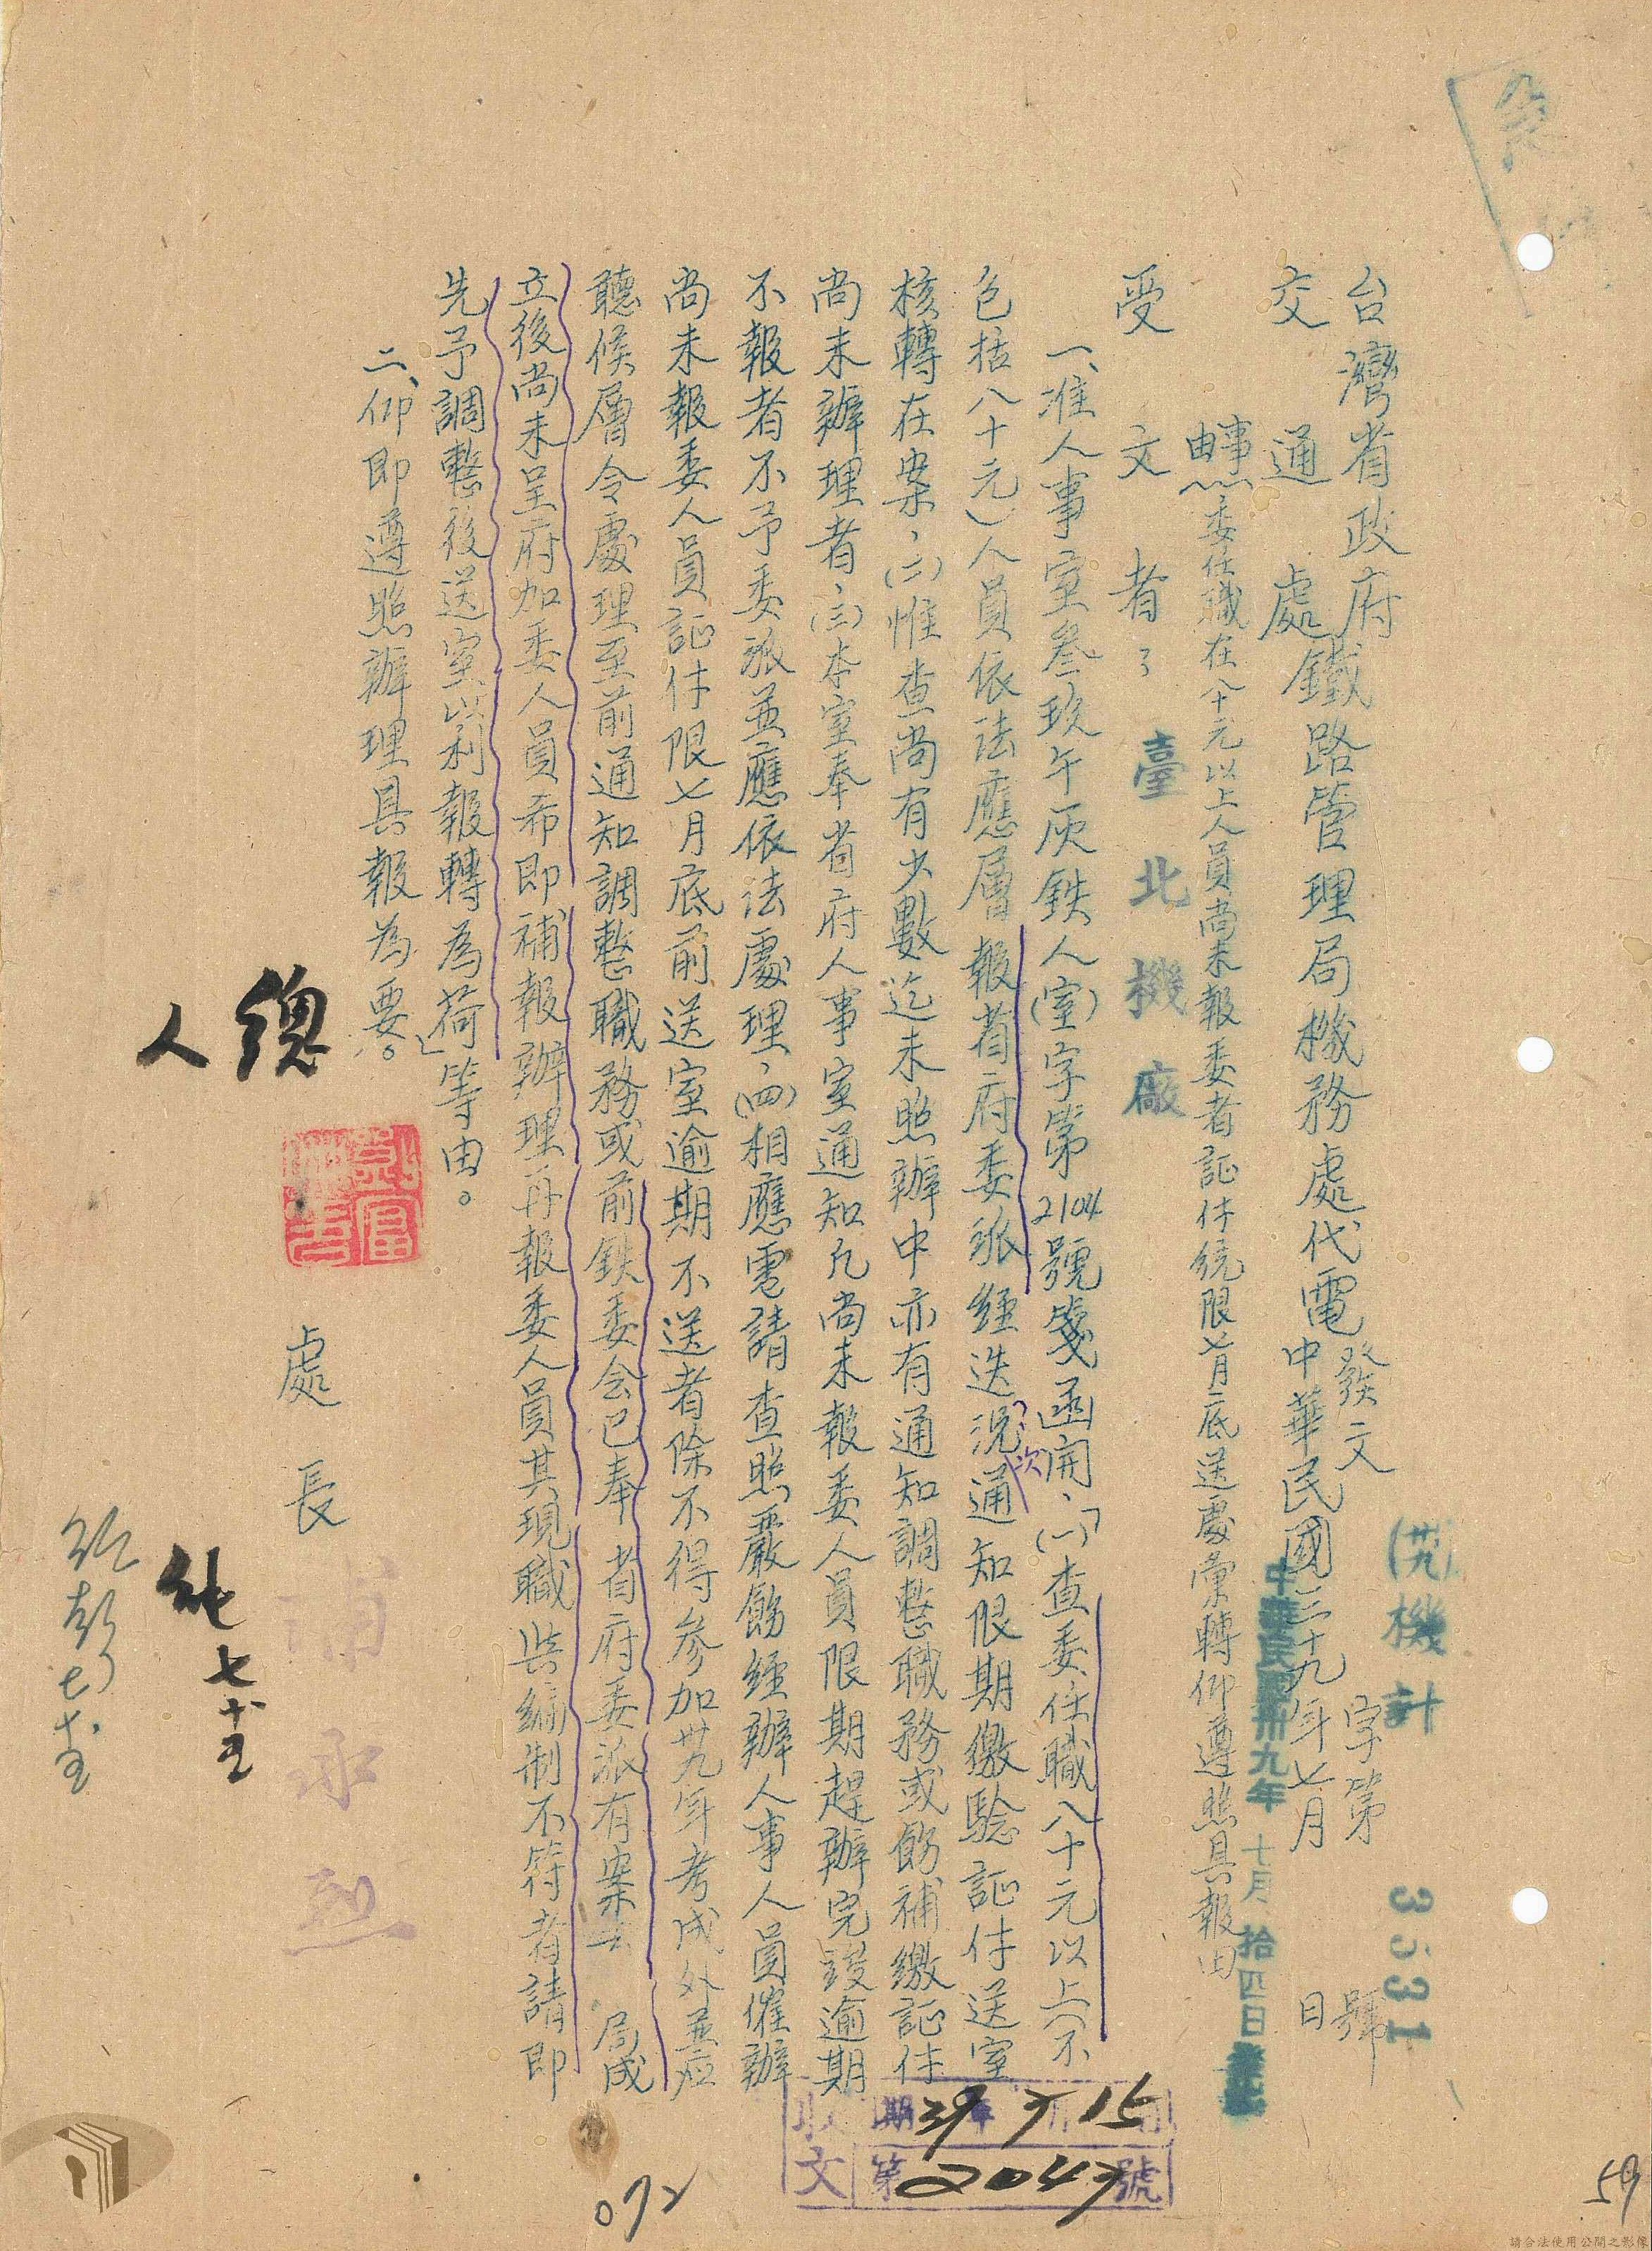 台灣省政府
交通處鐵路管理局機務處代電
發文
(卅九)機計字第3531號
中華民國三十九年七月 日
中華民國卅九年七月拾四日
事由:委任職在八十元以上人員尚未報委者証件統限七月底送處彙轉仰遵照具報由
受文者:臺北機廠
一、准人事室叁玖午灰鉄人(室)字第2104號箋函開、「(一)查委任職八十元以上(不
包括八十元)人員依法應層報省府委派經迭次通知限期繳驗証件送室
核轉在案、(二)惟查尚有少數迄未照辦中亦有通知調整職務或飭補繳証件
尚未辦理者、(三)本室奉省府人事室通知凡尚未報委人員限期趕辦完竣逾期
不報者不予委派並應依法處理、(四)相應電請查照嚴飭經辦人事人員催辦
尚未報委人員証件限七月底前送室逾期不送者除不得參加卅九年考成外並應
聽候層令處理至前通知調整職務或前鉄委会已奉 省府委派有案 局成
立後尚未呈府加委人員希即補報辦理再報委人員其現職與編制不符者請即
先予調整後送室以利報轉為荷」等由。
二、仰即遵照辦理具報為要。
處長
總
人
七十五
收文
期39年7月15
第2047號
072
59
請合法使用公開之影像